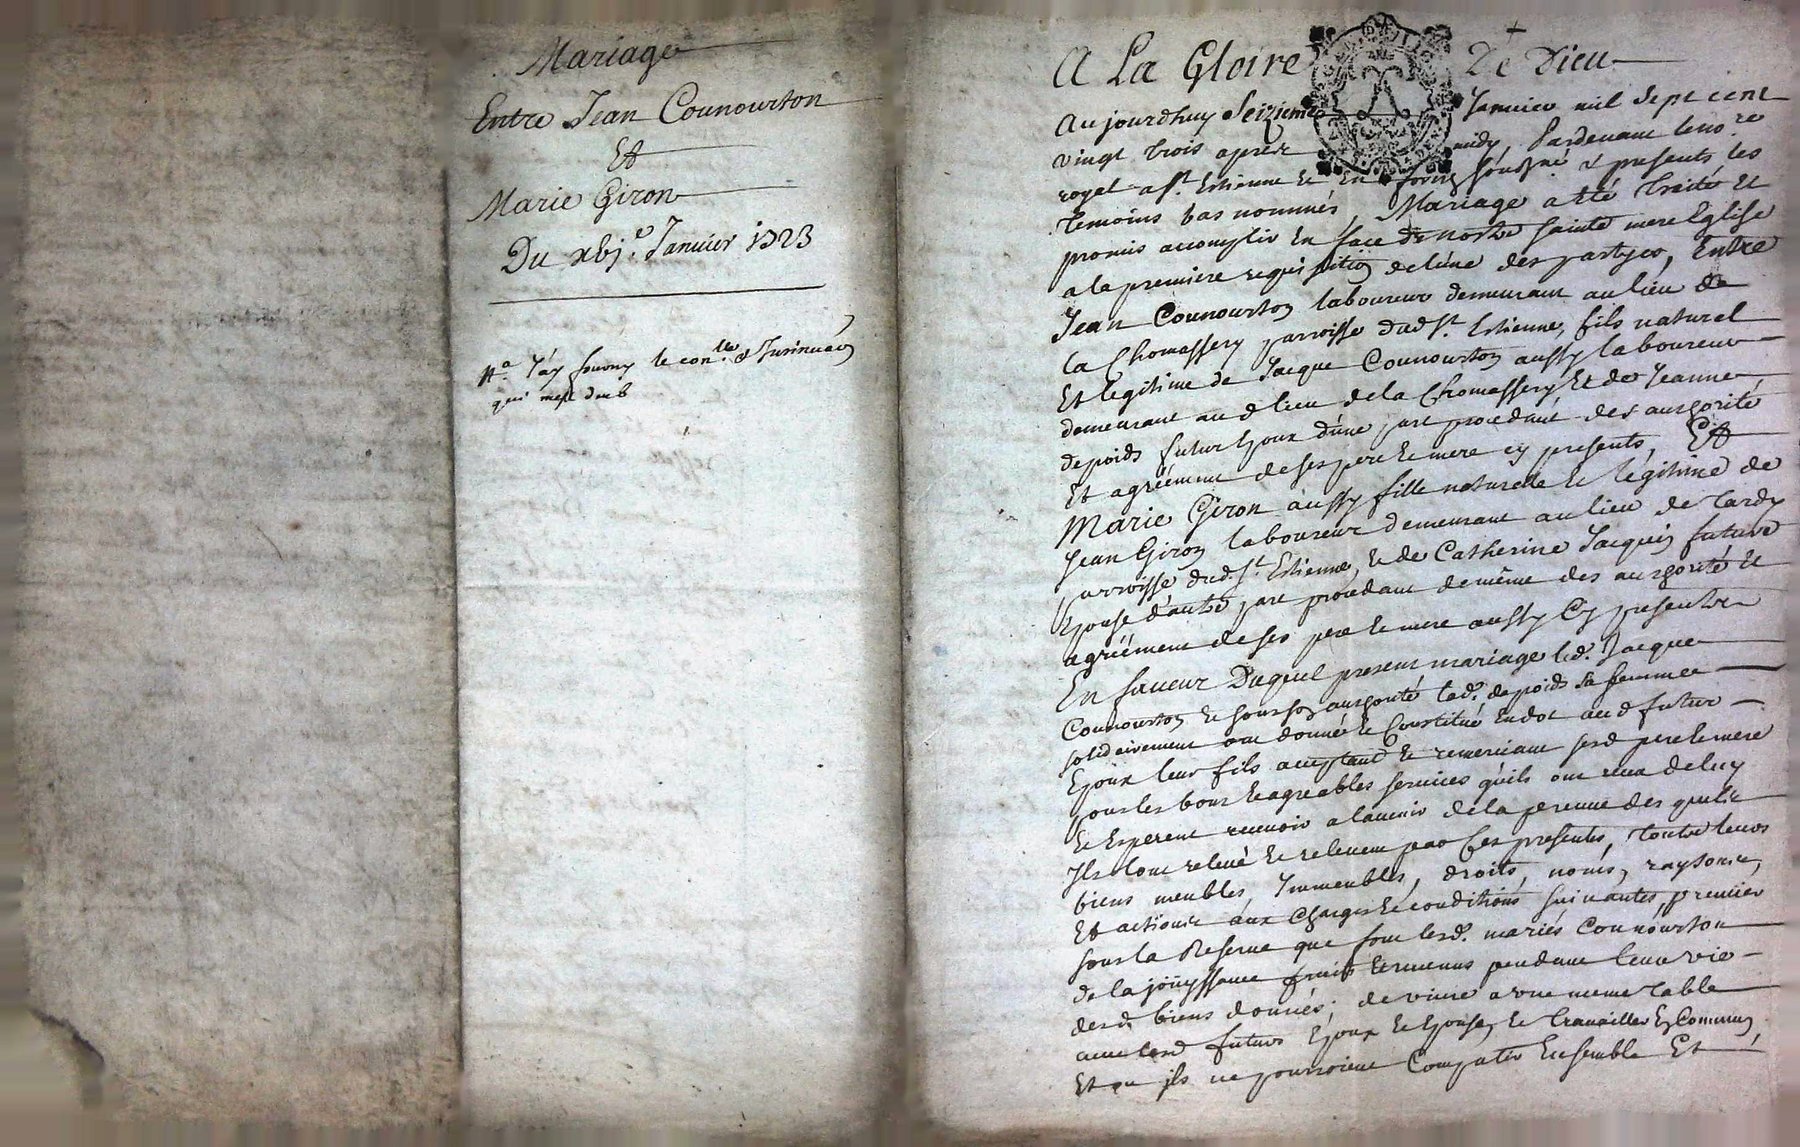 Mariage
Entre Jean Counourton
Et
Marie Giron
Du xbj.e Janvier 1723
Na. J'ay fourny le con.lle & Insinuaõn
qui mest deub
A La Gloire De Dieu
Aujourdhuy Seizieme Janvier mil sept cent
vingt trois apres midy, Pardevant le no.re
royal a St. Estienne Et En soubz.né & presents les
temoins bas nommés, Mariage a eté traité Et
promis accomplir En face de nostre sainte mere Eglise
a la premiere requisition de lune des partyes, Entre
Jean Counourton laboureur demeurant au lieu de
la Chomassery parroisse dud St. Estienne, fils naturel
Et legitime de Jacque Counourton aussy laboureur
demeurant aud lieu de la Chomassery Et de Jeanne
depoids futur Epoux d'une part procedant des authorité
Et agréement de ses pere Et mere cy presents, Et
Marie Giron aussy fille naturelle Et légitime de
Jean Giron laboureur demeurant au lieu de tardy
parroisse dud. St. Estienne, Et de Catherine Jacquin future
Epouse d'autre part procedant de même des authorité Et
agréement de ses pere Et mere aussy Cy presents
En faveur Duquel present mariage led. Jacque
Counourton Et sous son authorité lad. depoids sa femme
solidairement ont donné Et Constitué En dot aud futur
Epoux leur fils acceptant Et remerciant sesd pere Et mere
pour les bons Et agreables services quils ont receu de luy
Et Esperent recevoir a lavenir de la preuve des quels
Ils lont relevé Et relevent par Ces presentes, toutes leurs
biens meubles Immeubles, droits, noms, raysons,
Et actions aux charges Et conditions suivantes, premier
sous la Reserve que font lesd. mariés Counourton
de la joüyssance fruits Et revenus pendant leur vie
desd. biens donnés; de vivre a une meme table
avec lesd futurs Epoux Et Epouse, Et travailler En Commun
Et ou ils ne pourroient Compatir Ensemble Et